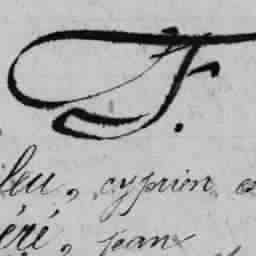 F.
leu, cyprien
éré, jean